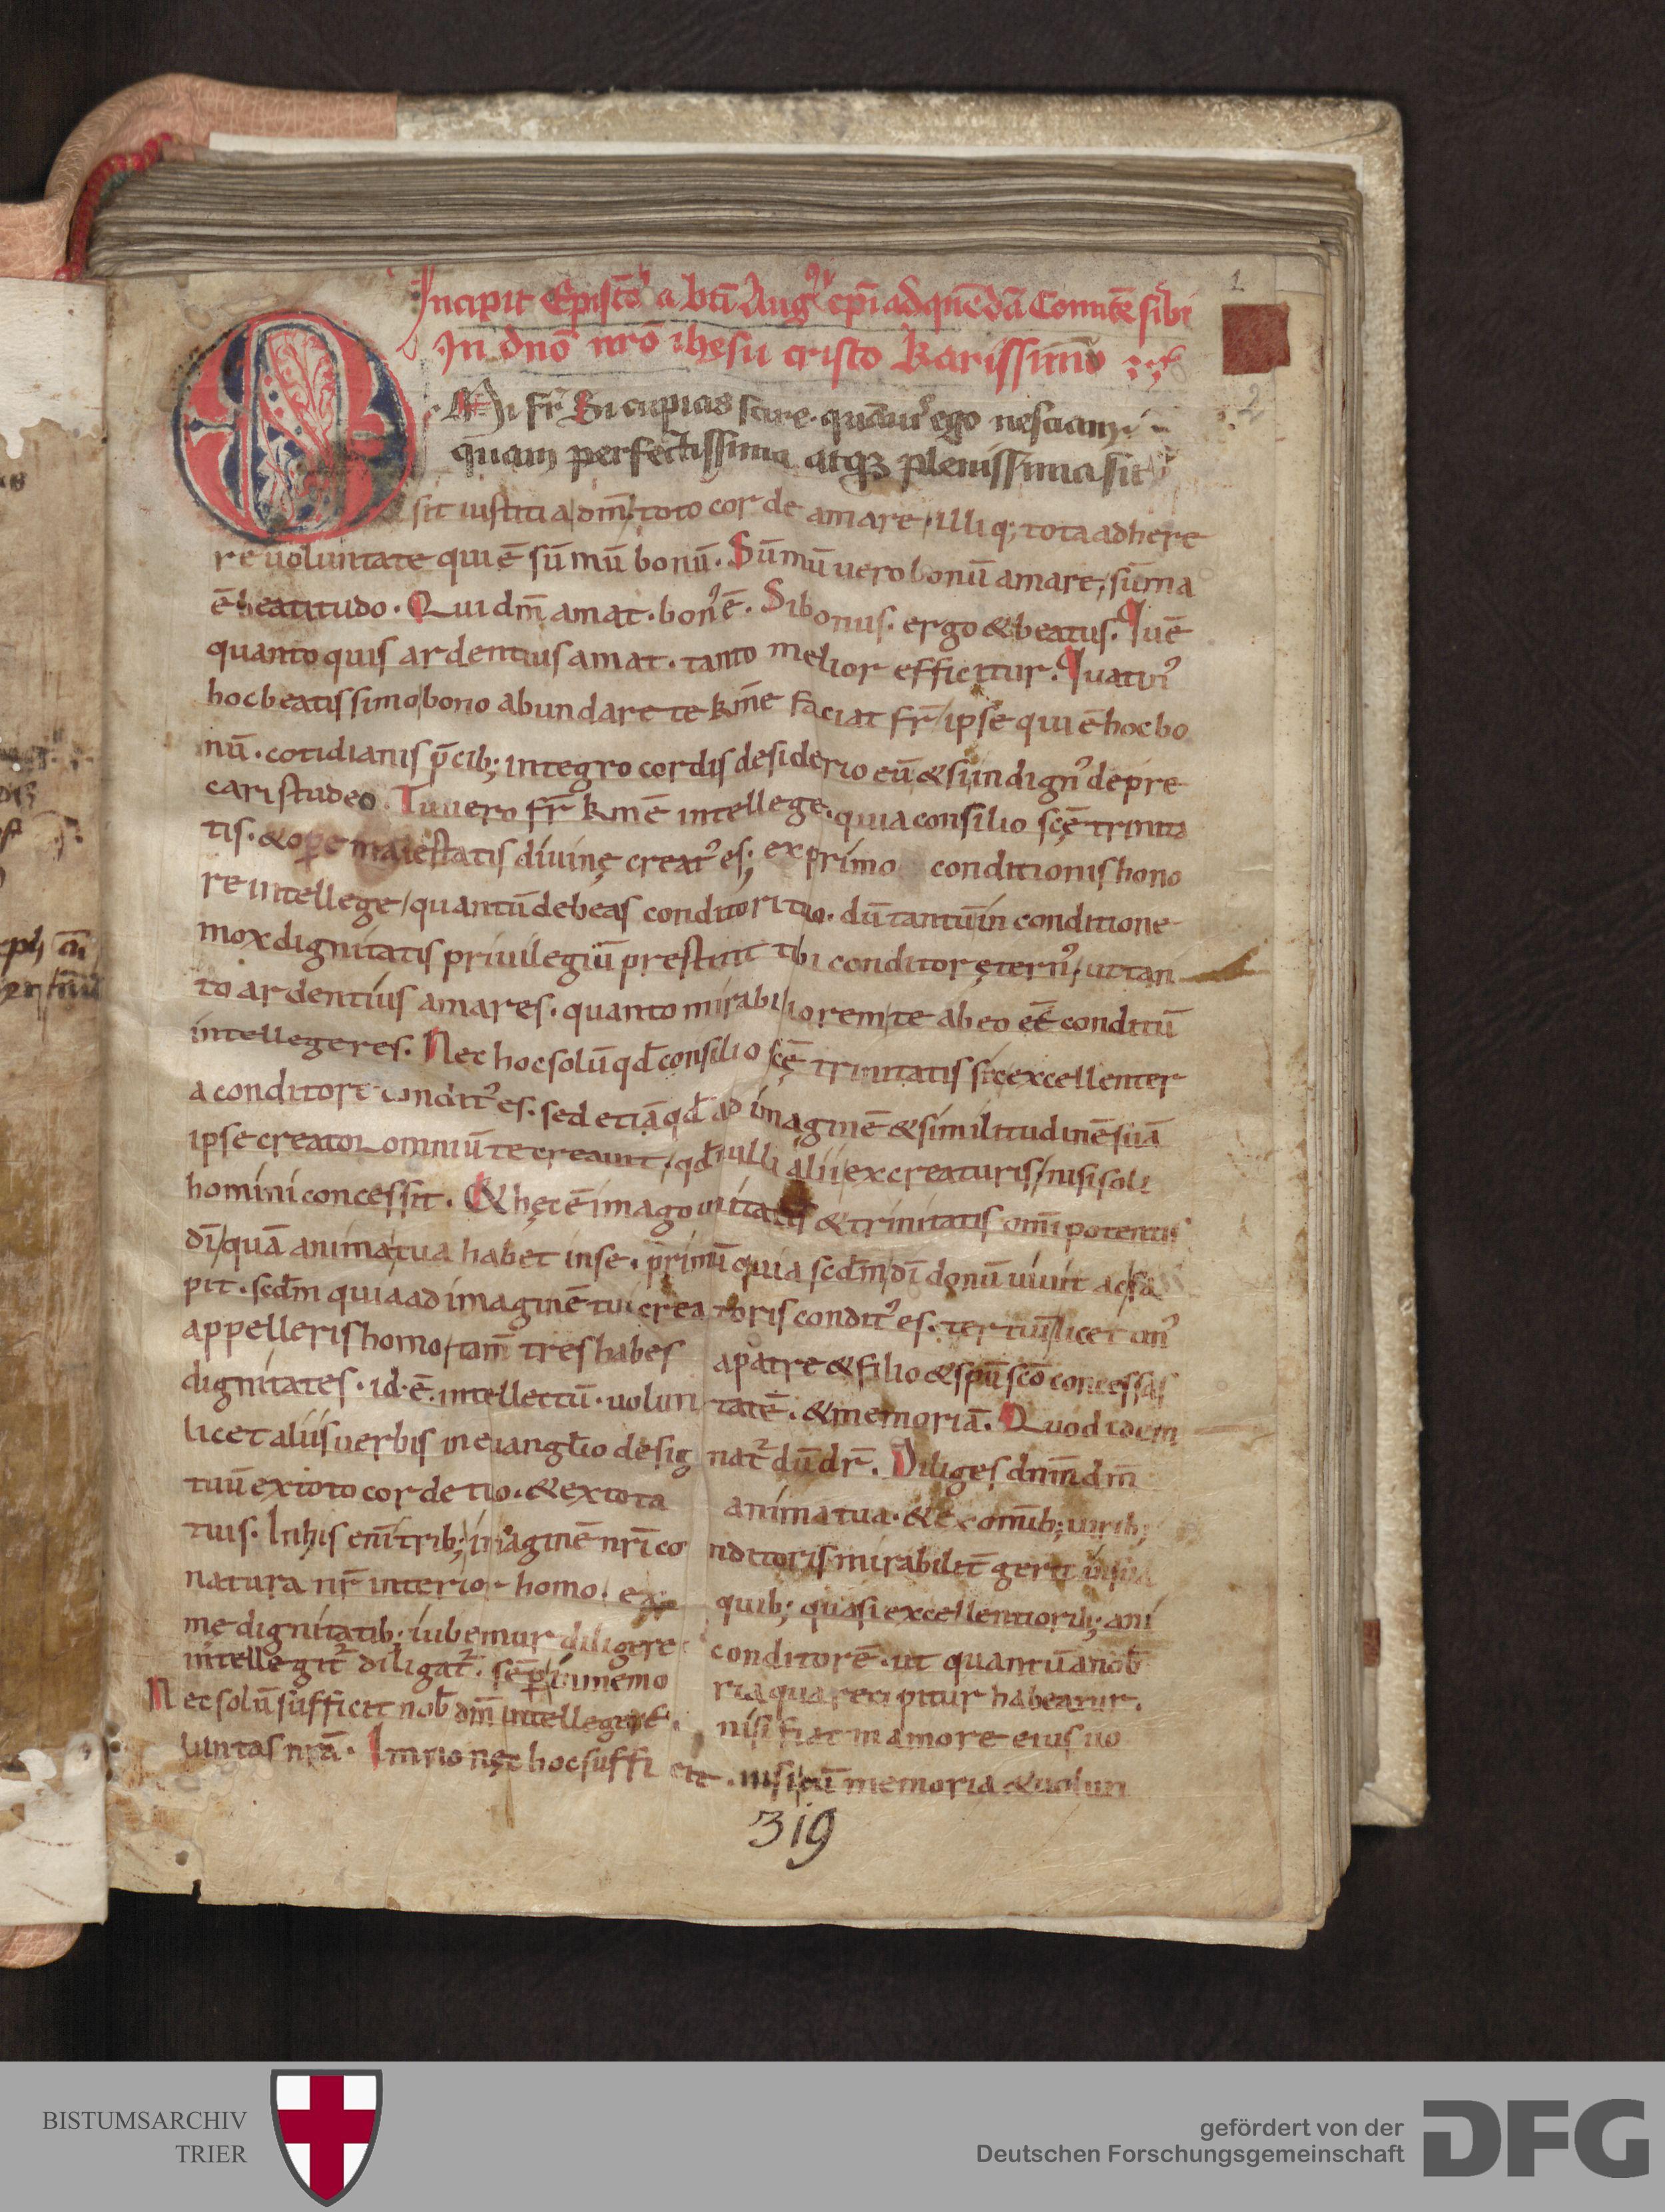 Incipit Epistō a btī Augꝰ epī ad quēdā Comitē sibi
In dn̄o nr̄o ihesu cristo karissimū
1
2
O Mi fr̄ Si cupias scire. quāuis ego nesciam
quam perfectissima atqꝫ plenissima sit
sit iustitia dm̄ toto corde amare. illiq; tota adhere
re uoluntate qui ē sūmū bonū. Sūmū uero bonū amare, sūma
ē beatitudo. Qui dm̄ amat. bonꝰ ē. Si bonus. ergo & beatus. Quē
quanto quis ardentius amat. tanto melior efficitur. Quatinꝰ
hoc beatissimo bono abundare te km̄e faciat fr̄ ipse qui ē hoc bo
nū. cotidianis p̄cib; integro cordis desiderio eū & si indignꝰ depre
cari studeo. Tu uero fr̄ kmē intellege. quia consilio scę̄ trinita
tis. & ope maiestatis diuinę creatꝰ es; ex primo conditionis hono
re intellege quantū debeas conditori tuo. dū tantū in conditione
mox dignitatis priuilegiū prestitit tibi conditor ęternꝰ, ut tan
to ardentius amares. quanto mirabiliorem te ab eo eē conditū
intellegeres. Nec hoc solū qd̄ consilio scę̄ trinitatis sic excellenter
a conditore conditꝰ es. sed etiā qd̄ ad imaginē & similitudinē suā
ipse creator omniū te creauit, qd̄ nulli alii ex creaturis nisi soli
homini concessit. & hęc ē imago unitatis & trinitatis om̄ipotentis
dī quā anima tua habet in se. primū quia scd̄m dī donū uiuit ac sa
pit. scd̄m quia ad imaginē tui creatoris conditꝰ es. tertiū licet unꝰ
appelleris homo, tam̄ tres habes a patre & filio & spū scō concessas
dignitates. id. ē. intellectū. uoluntatē. & memoriā. Quod idem
licet aliis uerbis in euanglio designat᷑ dū dr̄. Diliges dnm̄ dm̄
tuū ex toto corde tuo. & ex tota anima tua. & ex omīb; uirib;
tuis. In his enī trib; imaginē nrī conditoris mirabilit̄ gerit in sua
natura nr̄ interior homo. ex quib; quasi excellentiorib; ani
me dignitatib; iubemur diligere conditorē. ut quantū a nob̄
intellegit᷑ diligat᷑. sēp in memoria qua recipitur habeatur.
Nec solū sufficit nob̄ dm̄ intellegere. nisi fiat in amore eius uo
luntas nrā. Immo nec hoc sufficit. nisi cū memoria & uolun
319
BISTUMSARCHIV
TRIER
gefördert von der
Deutschen Forschungsgemeinschaft
DFG